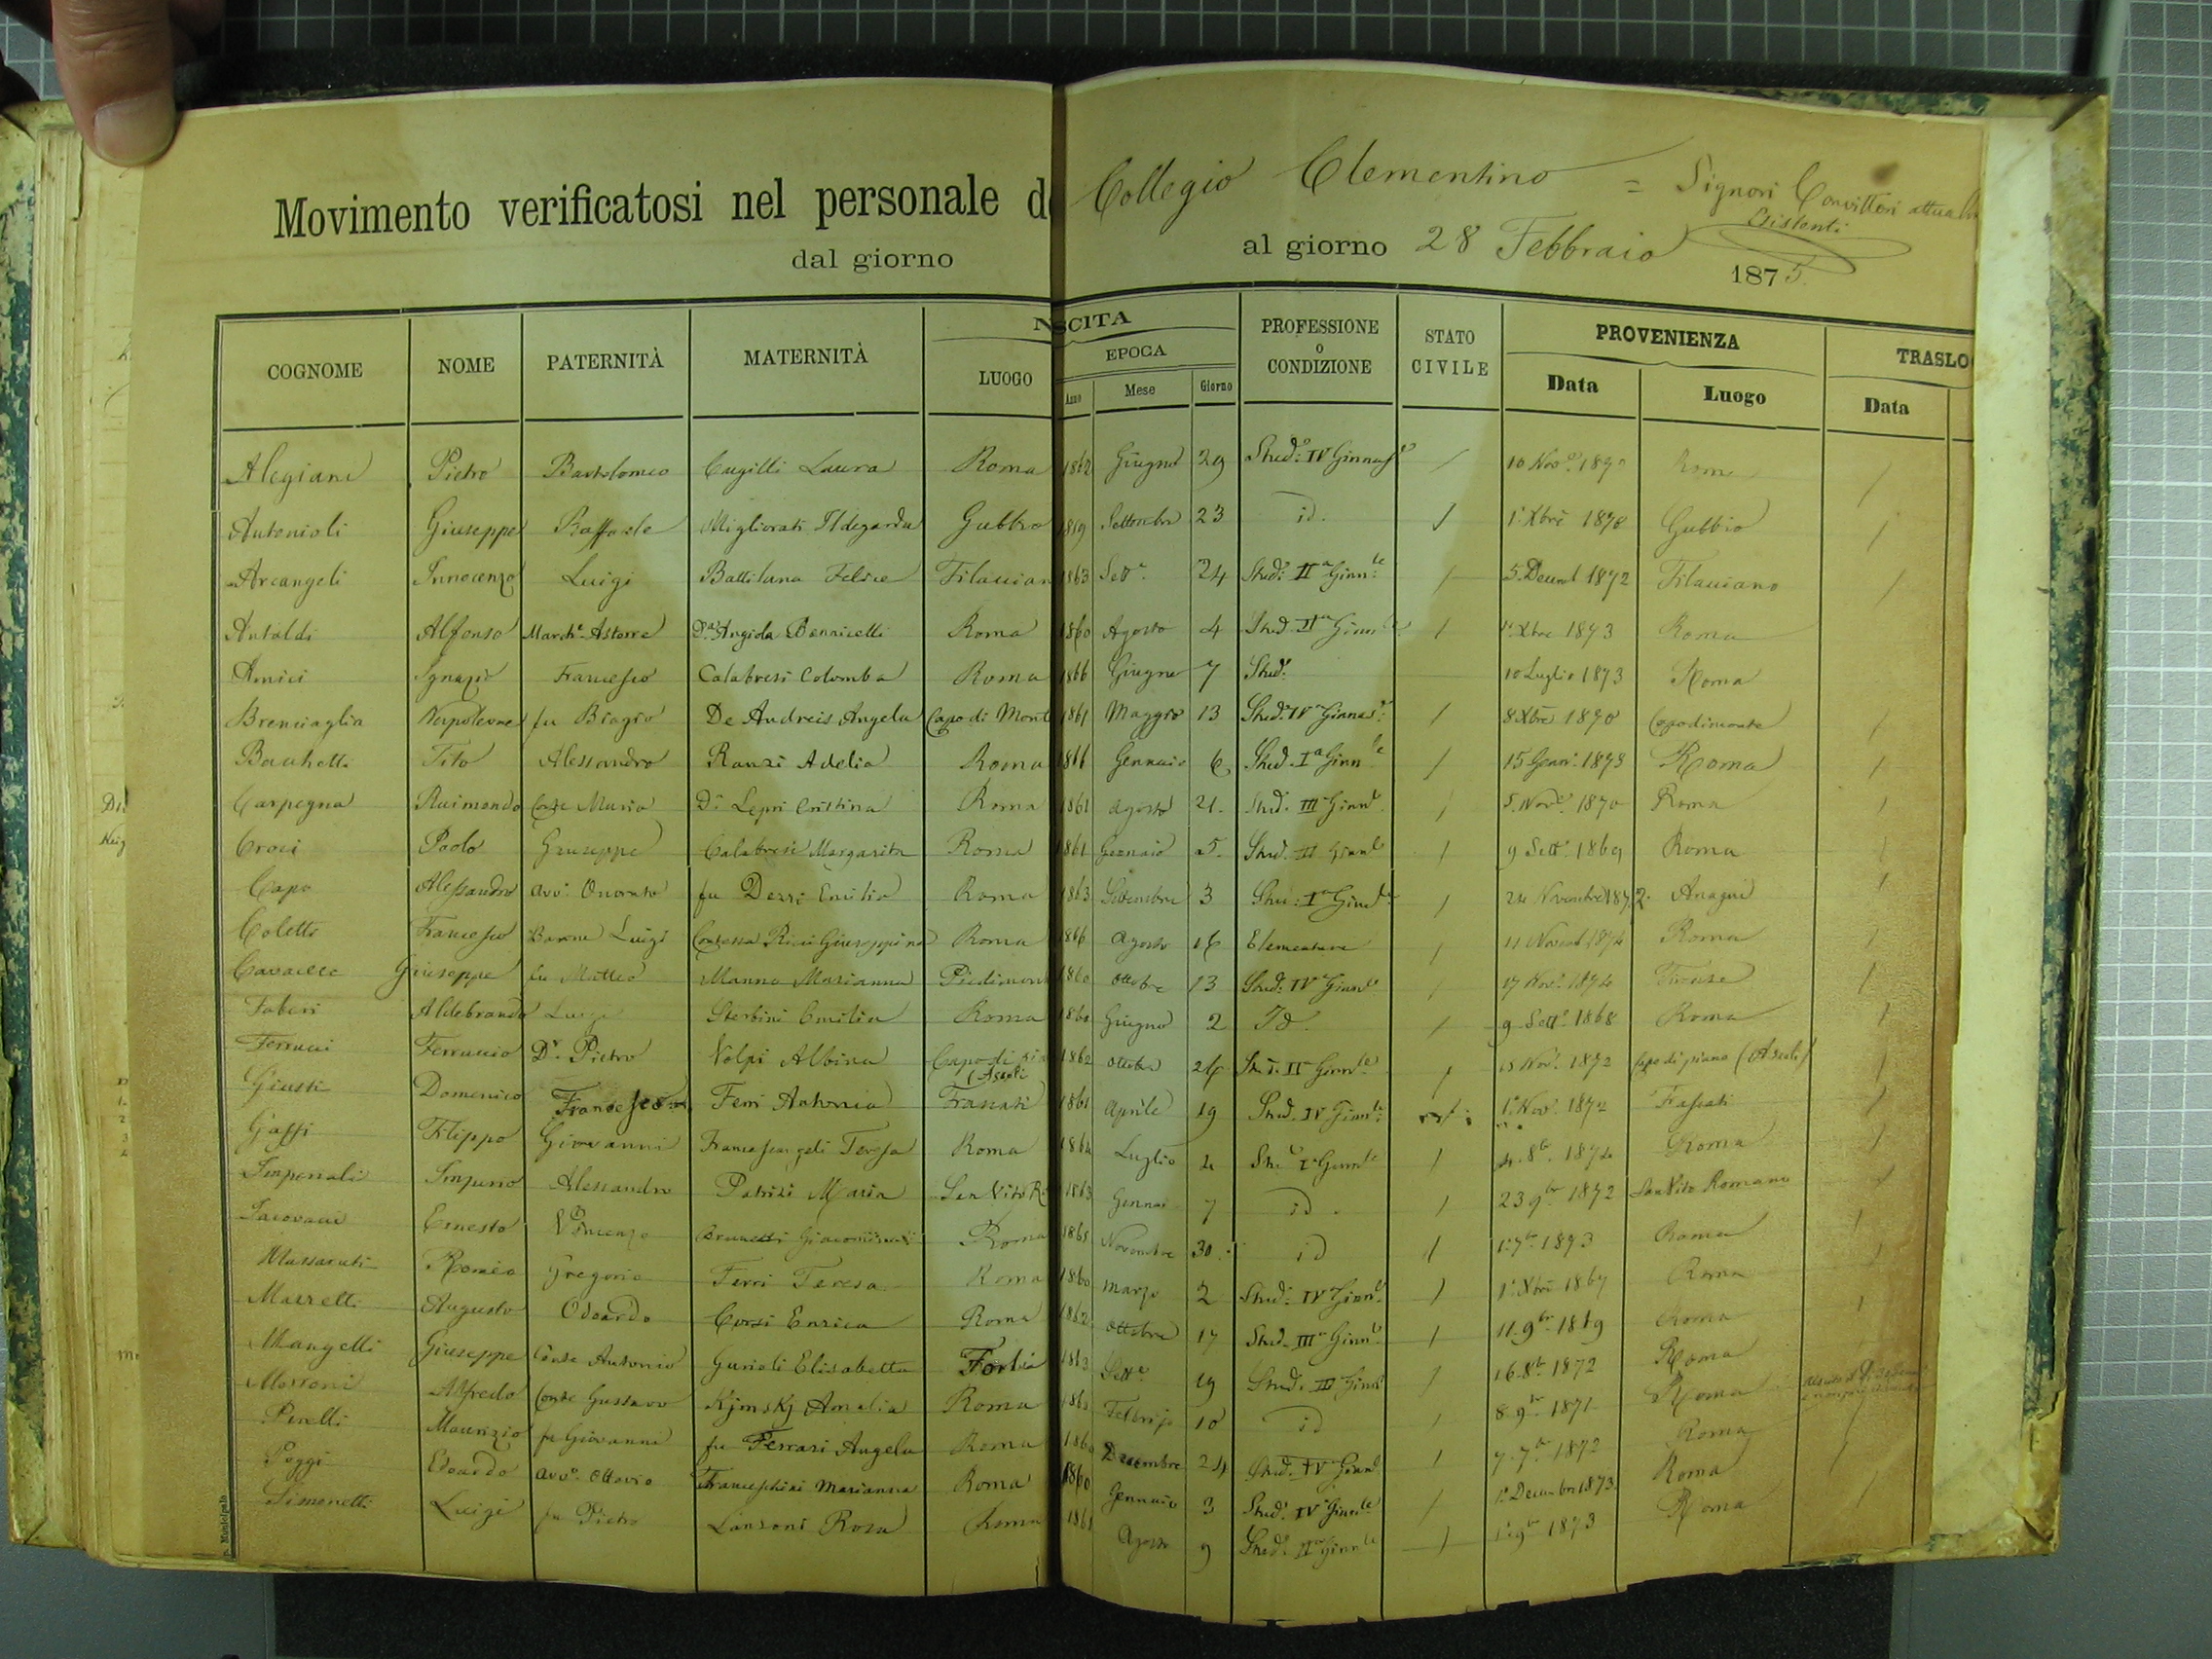 Movimento verificatosi nel personale d Collegio Clementino = Signori Convittori attual
Esistenti
dal giorno al giorno 28 Febbraio 1875.
NSCITA
COGNOME NOME PATERNITÀ MATERNITÀ LUOGO EPOCA Anno Mese Giorno PROFESSIONE o CONDIZIONE STATO CIVILE PROVENIENZA Data Luogo TRASLO Data
Alegiani Pietro Bartolomeo Cugilli Laura Roma 1862 Giugno 29 Stud. IV Ginnas 10 Nov. 1870 Roma
Antonioli Giuseppe Raffaele Migliorati Ildegarda Gubbio 1859 Settembre 23 id. 1. Xbre 1870 Gubbio
Arcangeli Innocenzo Luigi Battilana Felice Filacian 1863 Sett. 24 Stud. II Ginn.le 5. Decemb 1872 Filaciano
Antaldi Alfonso March. Astorre Da. Angiola Bennicelli Roma 1860 Agosto 4 Stud Ginn 1. Xbre 1873 Roma
Amici Ignazio Francesco Calabresi Colomba Roma 1866 Giugno 7 Stud. 10 Luglio 1873 Roma
Brenciaglia Napoleone fu Biagio De Andreis Angela Capo di Mont 1861 Maggio 13 Stud. IV Ginnas. 8 Xbre 1870 Capodimonte
Bachetti Tito Alessandro Ranzi Adelia Roma 1866 Gennaio 6 Stud. Ia Ginn.le 15 Genn. 1873 Roma
Carpegna Raimondo Conte Mario Di Lepri Cristina Roma 1861 Agosto 21. Stud. III Ginn 5. Nov. 1870 Roma
Croci Paolo Giuseppe Calabresi Margarita Roma 1861 Gennaio 25. Stud. III Ginn 9 Sett. 1869 Roma
Capo Alessandro Avv. Onorato fu Dezzi Emilia Roma 1863 Settembre 3 Stu: Ia Ginn 24 Novembre 1872. Anagni
Coletti Francesco Barone Luigi Contessa Ricci Giuseppina Roma 1866 Agosto 16 Elementare 11 Novemb 1874 Roma
Cavacece Giuseppe fu Matteo Manno Marianna Piedimon 1860 Ottobre 13 Stud. IV Ginn 17 Nov. 1874 Firenze
Faberi Aldebrando Luigi Sterbini Emilia Roma 1860 Giugno 2 Id. 9 Sett. 1868 Roma
Ferrucci Ferruccio Dr. Pietro Volpi Albina Capo di pia (Ascoli 1862 Ottobre 26 Stu. IV Ginn.le 15 Nov. 1872 Capo di piano (Ascoli)
Giusti Domenico Francesco Ferri Antonia Frascati 1861 Aprile 19 Stud. IV Ginn.le 1. Nov. 1872 Frascati
Gassi Filippo Giovanni Francescangeli Teresa Roma 1864 Luglio 4 Stu. I Ginn.le 4. 8bre. 1874 Roma
Imperiali Imperio Alessandro Patrizi Maria San Vito R 1863 Gennai 7 id. 23 9bre 1872 San Vito Romano
Iacovacci Ernesto Vincenzo Brunetti Roma 1865 Novembre 30. id 1. 7bre 1873 Roma
Massaruti Romeo Gregorio Ferri Teresa Roma 1860 Marzo 2 Stud. IV Ginn. 1. Xbre 1867 Roma
Mazzelli Augusto Odoardo Corsi Enrica Roma 1862 Ottobre 17 Stud. III Ginn. 11. 9bre 1869 Roma
Mangelli Giuseppe Conte Antonio Gurioli Elisabetta Forlì 1863 Sett. 19 Stud. III Ginn 16. 8bre 1872 Roma
Moroni Alfredo Conte Gustavo Kjmskj Amalia Roma Febbrajo 10 id 8. 9bre 1871 Roma
Perelli Maurizio fu Giovanni fu Ferrari Angela Roma 1860 Decembre 24 Stud. IV Ginn. 7. 7bre 1872 Roma
Poggi Edoardo Avv. Ottavio Franceschini Marianna Roma 1860 Gennaio 3 Stud. IV Ginn.le 1. Decembre 1873 Roma
Simonetti Luigi fu Pietro Lanzoni Rosa Roma 1861 Agosto 9 Stud. II Ginn.le 1. 9bre 1873 Roma